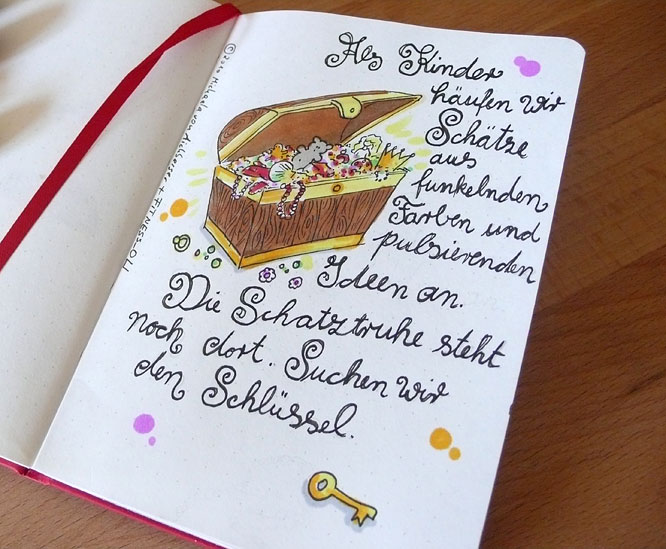 Als Kinder
häufen wir
Schätze
aus
funkelnden
Farben und
pulsierenden
Ideen an.
Die Schatztruhe steht
noch dort. Suchen wir
den Schlüssel.